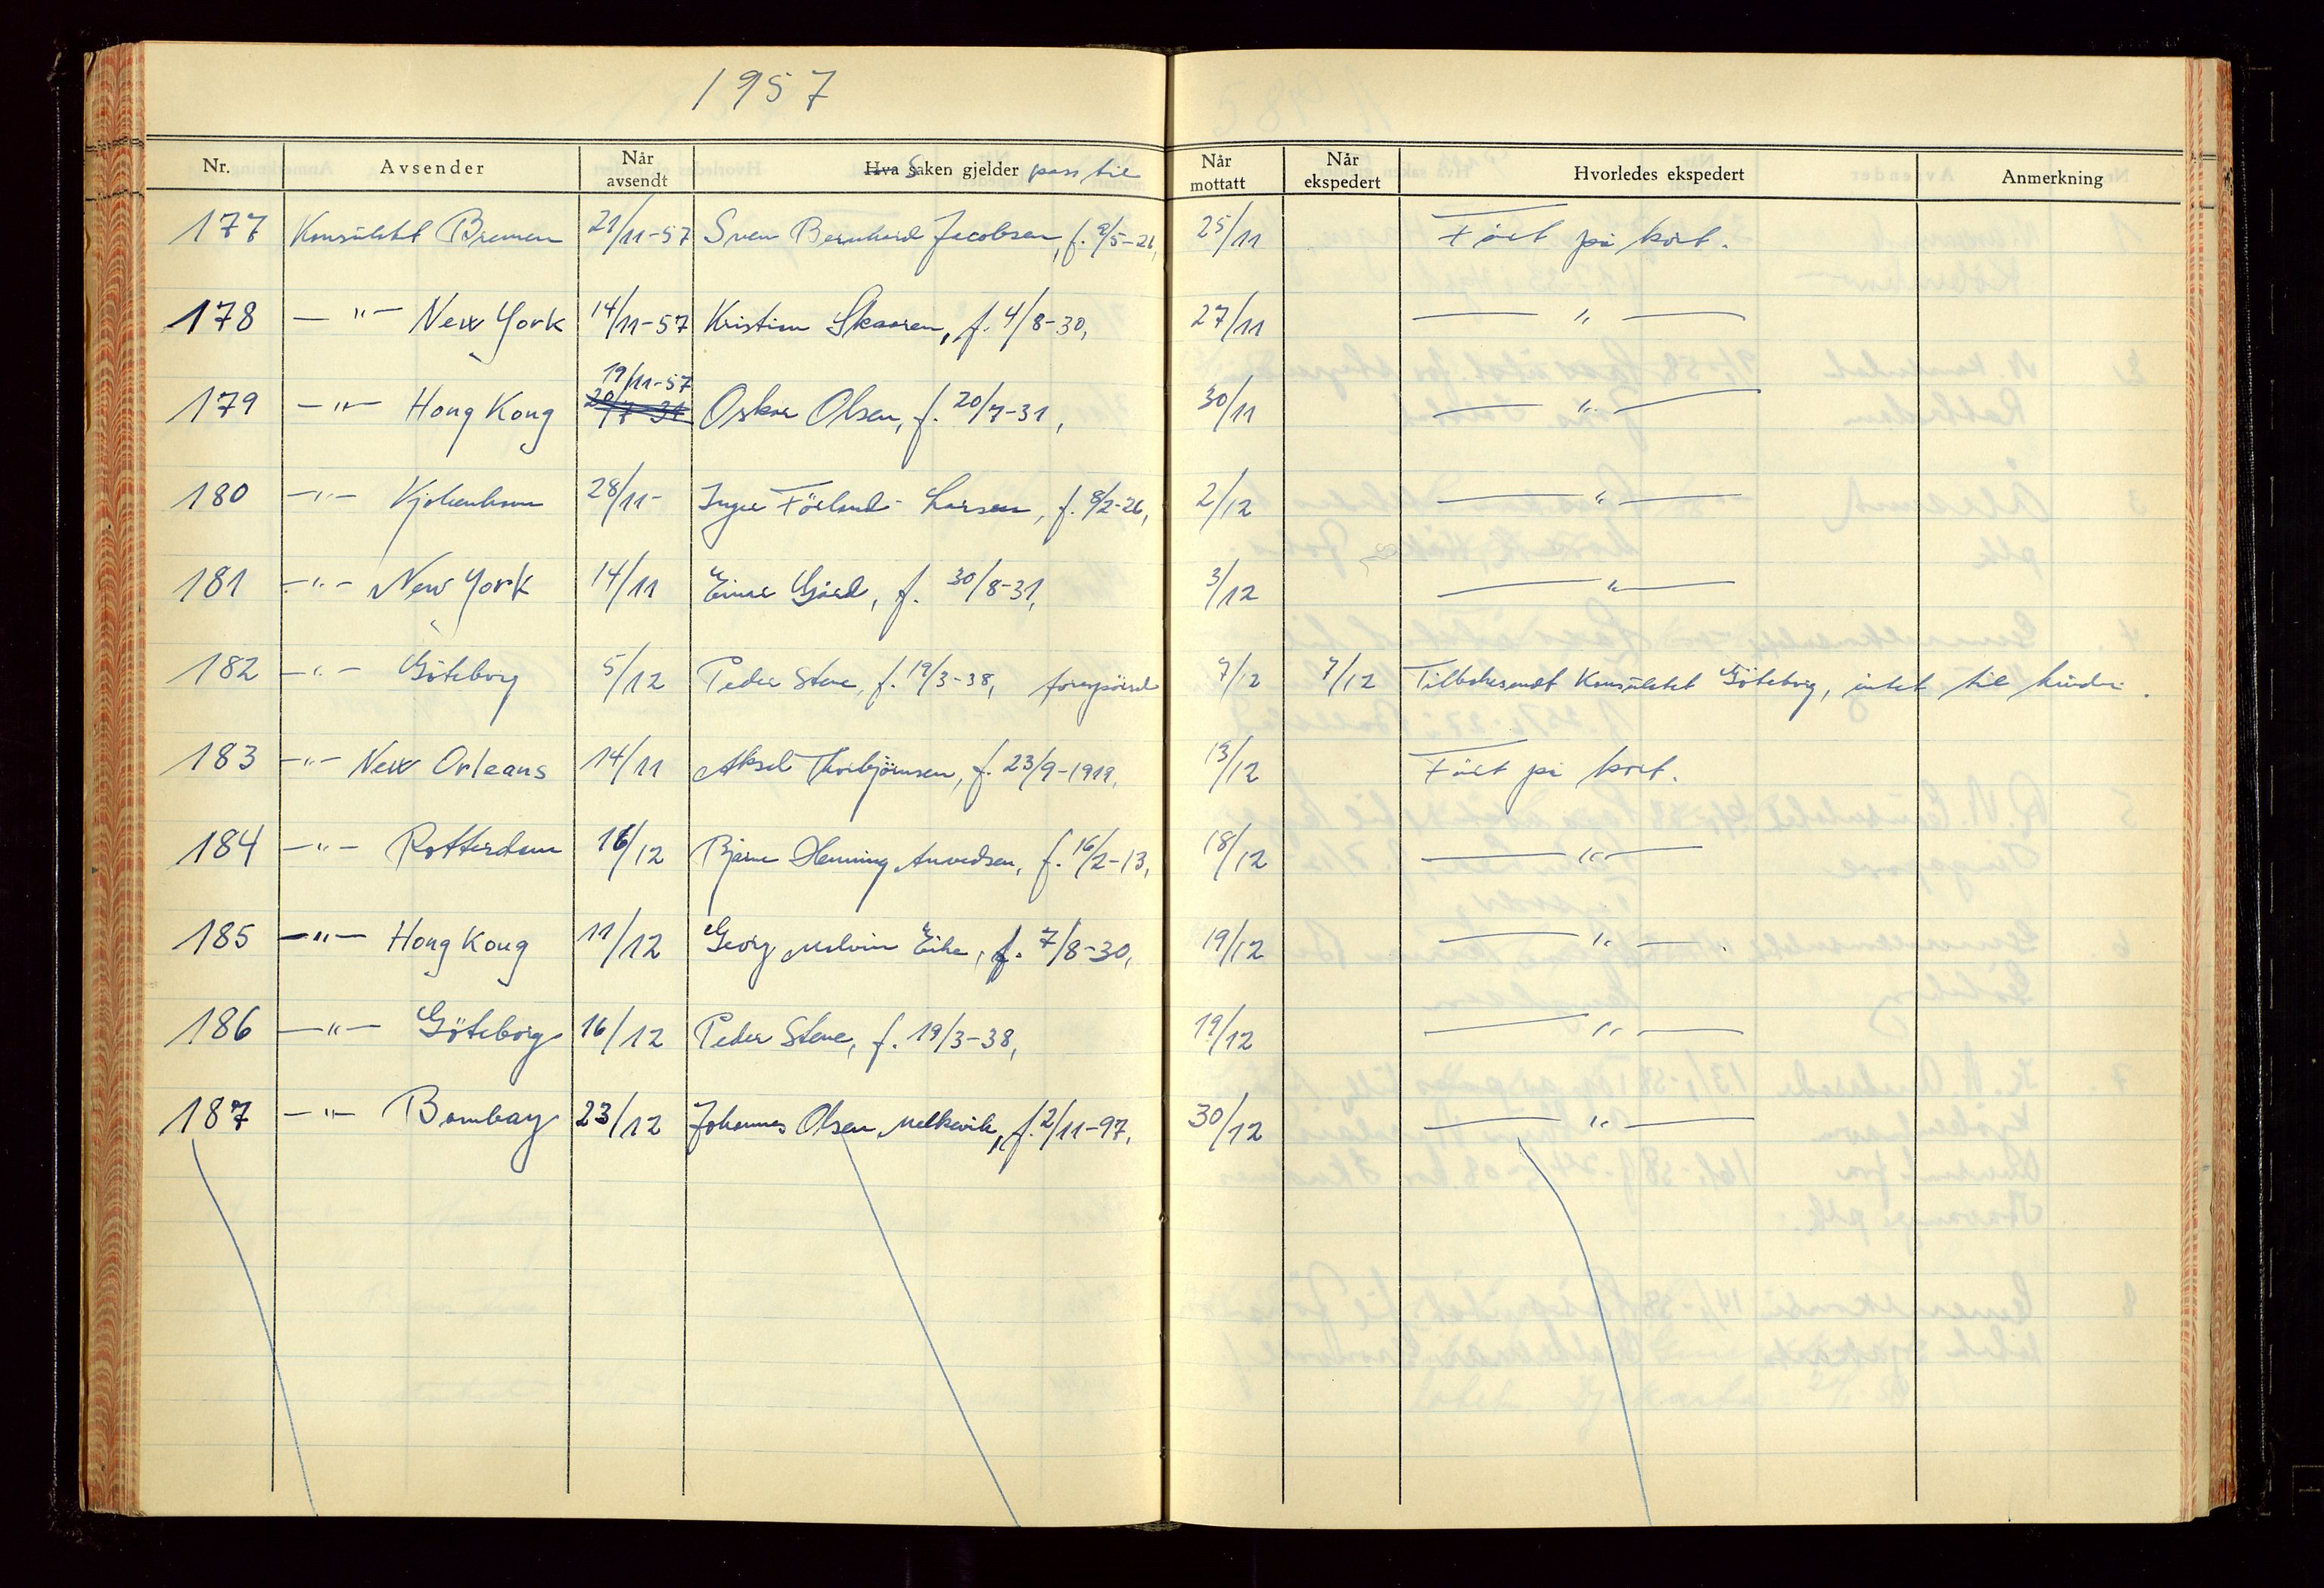 1957
Nr. Avsender Når avsendt Hva Saken gjelder pass til Når mottatt Når ekspedert Hvorledes ekspedert Anmerkning
177 Konsulatet Bremen 21/11-57 Sven Bernhard Jacobsen, f. 9/5-26, 25/11 Fört på kort.
178 — " — New York 14/11-57 Kristian Skaaren, f. 4/8-30, 27/11 — " —
19/11-57
179 — " — Hong Kong 20/7-31 Oskar Olsen, f. 20/7-31, 30/11 — " —
180 — " — Kjøbenhavn 28/11- Inger Förland Larsen, f. 8/2-26, 2/12 — " —
181 — " — New York 14/11 Einar Gjørd, f. 30/8-31, 3/12 — " —
182 — " — Göteborg 5/12 Peder Stene, f. 19/3-38, forespörsel 7/12 7/12 Tilbakesendt Konsulatet Göteborg, intet til hinder.
183 — " — New Orleans 14/11 Aksel Thorbjörnsen, f. 23/9-1919, 13/12 Fört på kort.
184 — " — Rotterdam 16/12 Bjarne Henning Arvedsen, f. 16/2-13, 18/12 — " —
185 — " — Hong Kong 11/12 Georg Malvin Eike, f. 7/8-30, 19/12 — " —
186 — " — Göteborg 16/12 Peder Stene, f. 19/3-38, 19/12 — " —
187 — " — Bombay 23/12 Johannes Olsen Melkevik, f. 2/11-97, 30/12 — " —